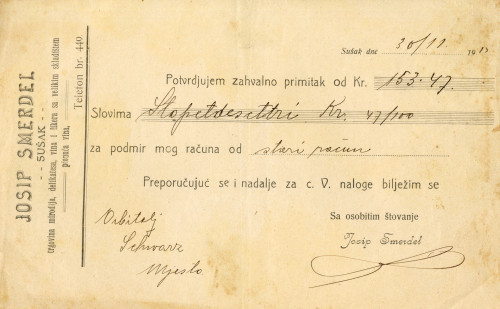 JOSIP SMERDEL
- - SUŠAK - -
trgovina mirodija, delikatesa, vina i likera sa velikim skladištem
pjenića vina,
Telefon br. 440.
Sušak dne 30/11 191
Potvrdjujem zahvalno primitak od Kr. 153·47.
Slovima Stopetdesettri Kr. 47/100
za podmir mog računa od stari račun
Preporučujuć se i nadalje za c. V. naloge bilježim se
Sa osobitim štovanje
Josip Smerdel
Obitelj
Schwarz
Mjesto